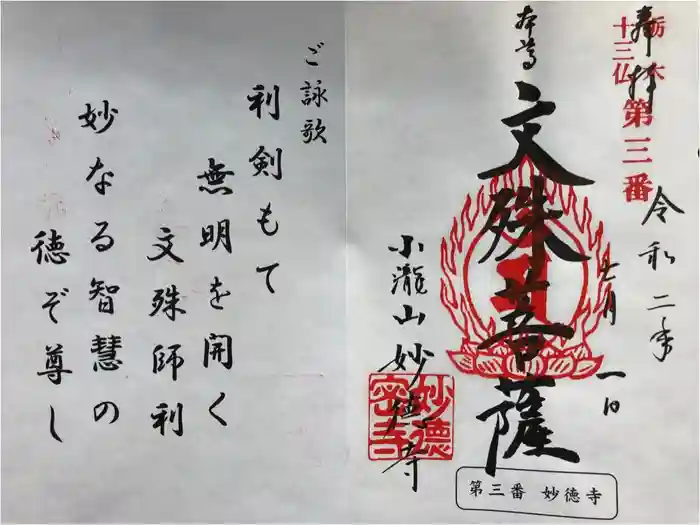 奉拝
栃木
十三仏
第三番
令和二年
七月一日
本尊
文殊菩薩
小瀧山妙徳寺
妙德
密寺
第三番 妙徳寺
ご詠歌
利剣もて
無明を開く
文殊師利
妙なる智慧の
徳ぞ尊し